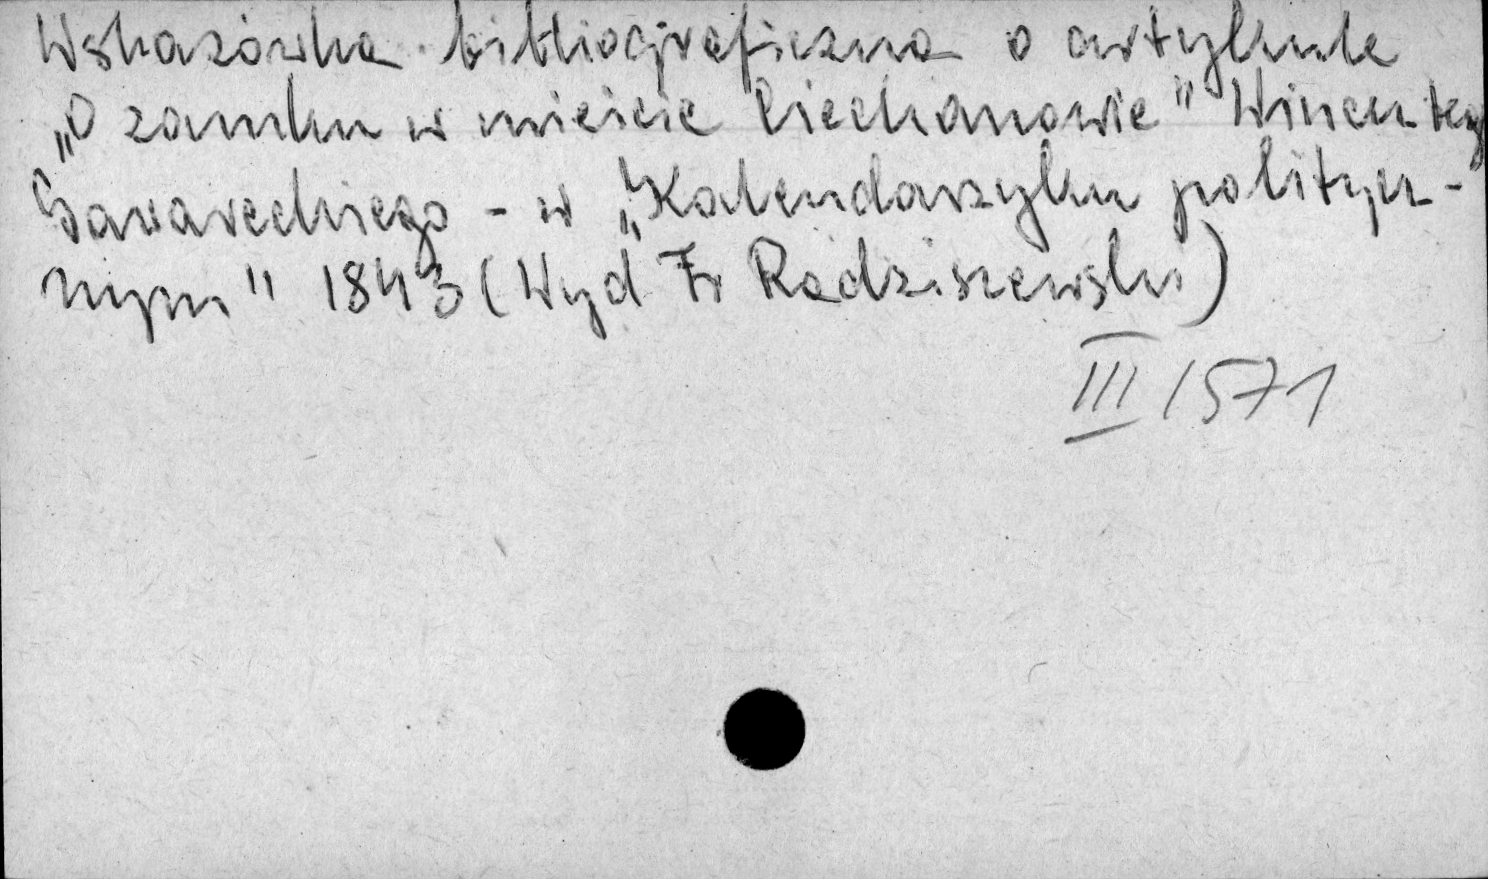 Wskazówka bibliograficzna o artykule
„O zamku w mieście Ciechanowie" Wincenteg
Gawareckiego - w „Kalendarzyku politycz-
nym" 1843 (Wyd Fr Radziszewski)
III 1571